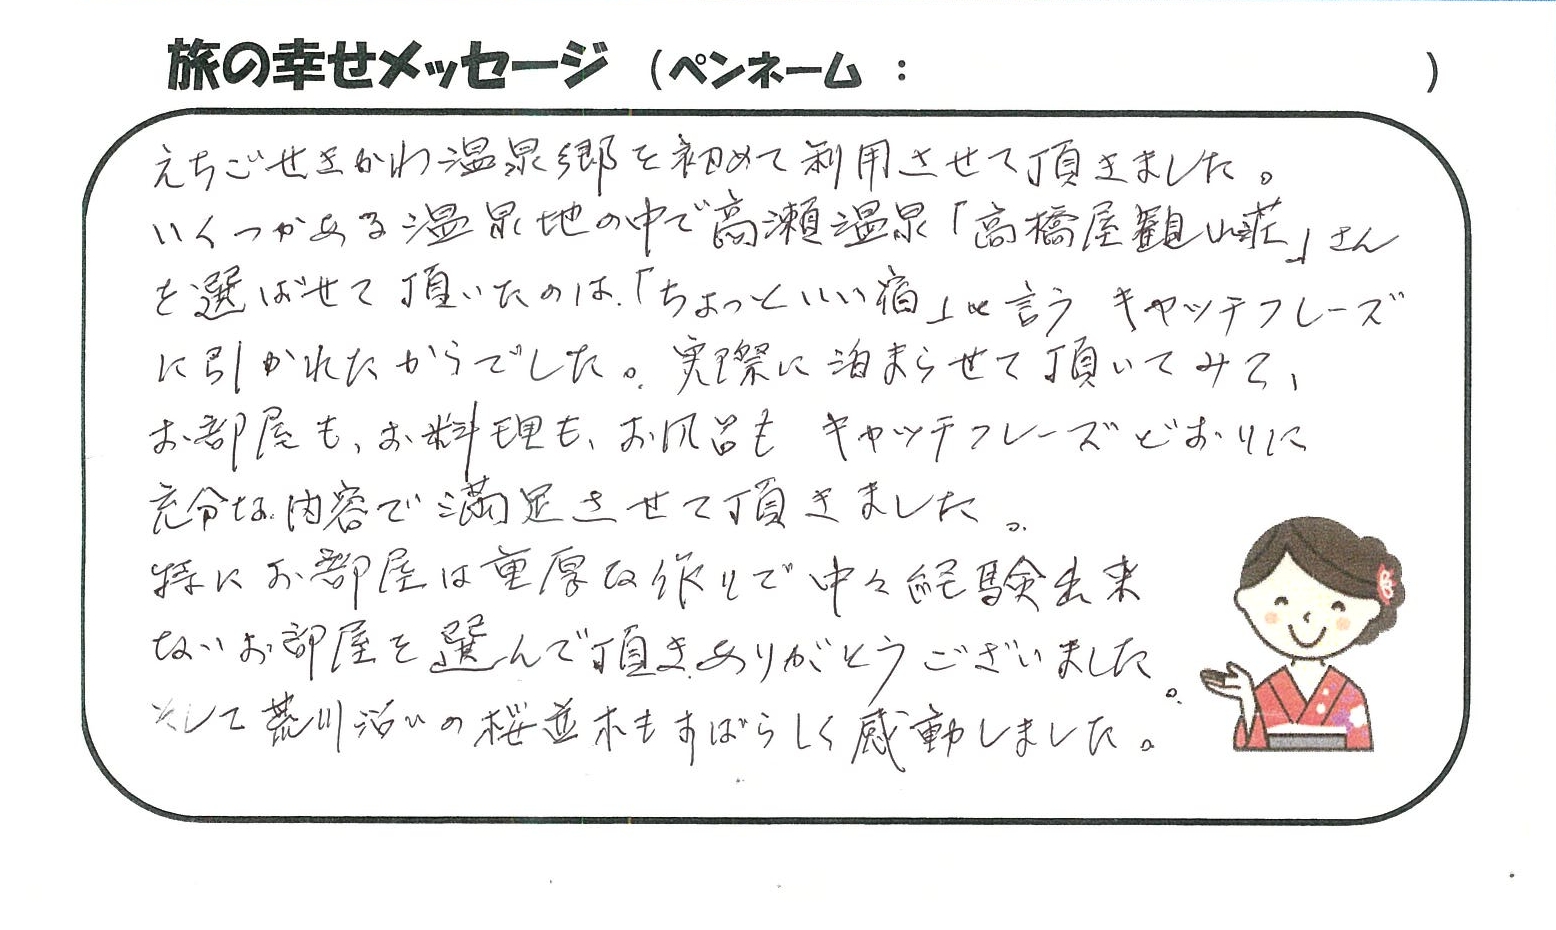 旅の幸せメッセージ (ペンネーム : )
えちごせきかわ温泉郷を初めて利用させて頂きました。
いくつかある温泉地の中で高瀬温泉「高橋屋観山荘」さん
を選ばせて頂いたのは、「ちょっといい宿」と言うキャッチフレーズ
に引かれたからでした。実際に泊まらせて頂いてみて、
お部屋も、お料理も、お風呂もキャッチフレーズどおりに
充分な内容で満足させて頂きました。
特にお部屋は重厚な作りで中々経験出来
ないお部屋を選んで頂きありがとうございました。
そして荒川沿いの桜並木もすばらしく感動しました。